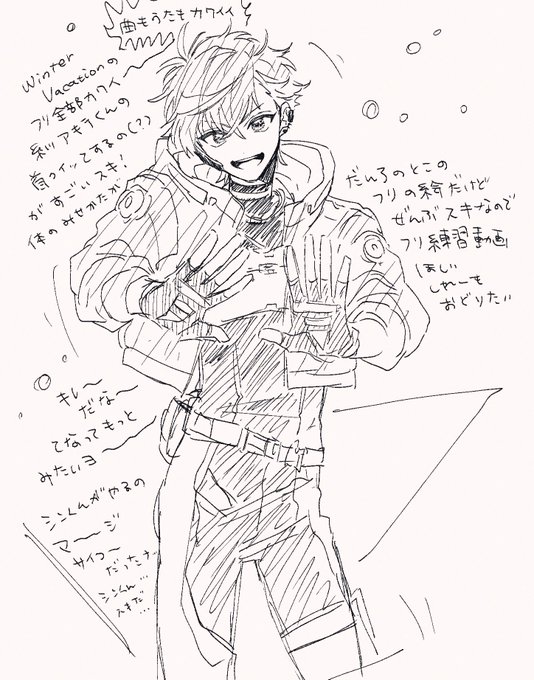 曲もうたもカワイイ
Winter
Vacationの
フリ全部カワイイ
アキラくんの
首クイッてするの(?)
がすごいスキ!
体のみせかたが
だんろのとこの
フリの絵だけど
ぜんぶスキなので
フリ練習動画
ほしい
おどりたい
キレ〜
だな〜
てなってもっと
みたいヨ
シンくんがやるの
マージ
サイコー
だったナ…
シンくん…
スキだ…